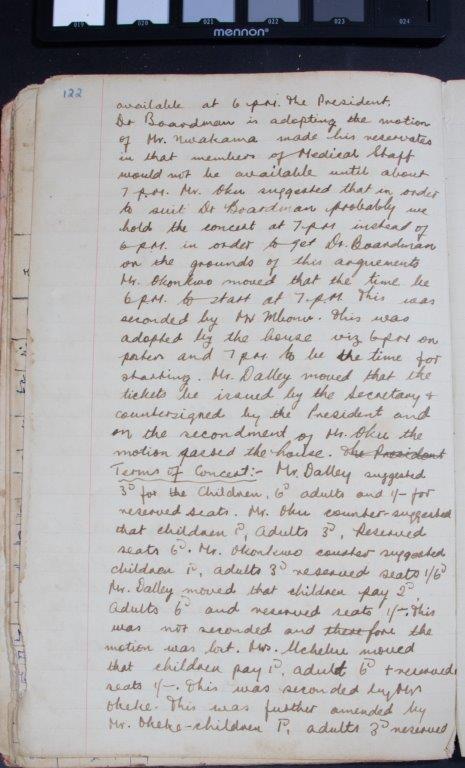 019 020 021 022 023 024
mennon
122
available at 6 p.m. The President,
Dr Boardman is adopting the motion
of Mr. Nwakama made his reservates
in that members of Medical Staff
would not be available until about
7 p.m. Mr. Oku suggested that in order
to suit Dr Boardman probably we
hold the concert at 7 p.m instead of
6 p.m. in order to get Dr. Boardman
on the grounds of this arguements
Mr. Okonkwo moved that the time be
6 p.m. to start at 7 p.m. This was
seconded by Mr Mbonu. This was
adopted by the house viz 6 p.m on
posters and 7 p.m. to be the time for
starting. Mr. Dalley moved that the
tickets be issued by the Secretary &
countersigned by the President and
on the secondment of Mr. Oku the
motion passed the house. The President
Terms of Concert:- Mr. Dalley suggested
3D for the Children, 6D adults and 1/- for
reserved seats. Mr. Oku counter-suggested
that children 1D, Adults 3D, Reserved
seats 6D. Mr. Okonkwo counter suggested
children 1D, adults 3D reserved seats 1/6D
Mr. Dalley moved that children pay 2D,
Adults 6D and reserved seats 1/-. This
was not seconded and therefore the
motion was lost. Mrs. Ucheluu moved
that children pay 1D, adult 6D & reserved
seats 1/-. This was seconded by Mr
Okeke. This was further amended by
Mr. Okeke-children 1D, adults 3D reserved